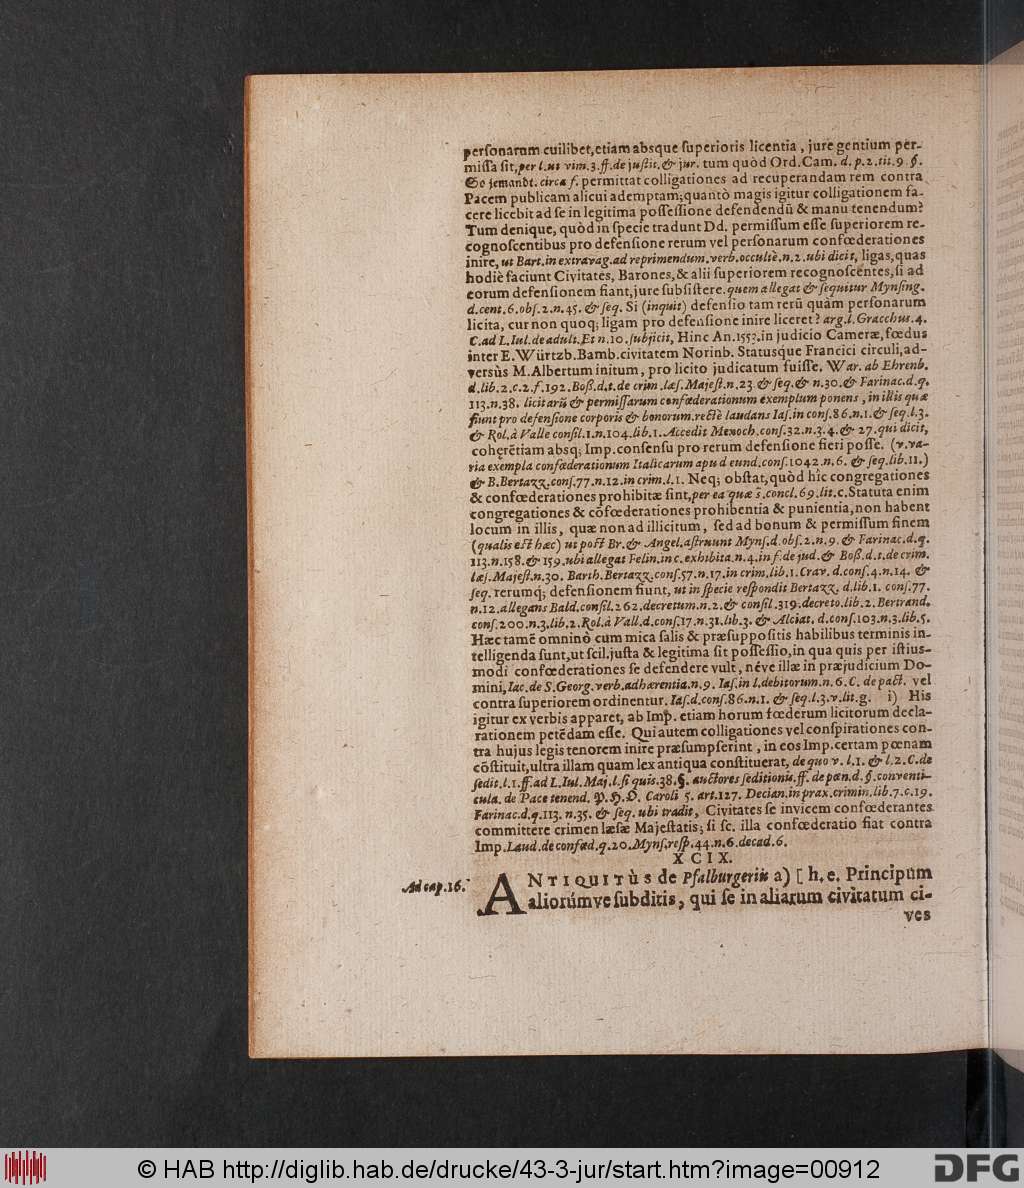 personarum cuilibet, etiam absque superioris licentia, jure gentium per-
missa sit, per l. ut vim. 3. ff. de justit. & jur. tum quòd Ord. Cam. d. p. 2. tit. 9. §.
So jemandt. circa f. permittat colligationes ad recuperandam rem contra
Pacem publicam alicui ademptam; quantò magis igitur colligationem fa-
cere licebit ad se in legitima possessione defendendū & manu tenendum?
Tum denique, quòd in specie tradunt Dd. permissum esse superiorem re-
cognoscentibus pro defensione rerum vel personarum confœderationes
inire, ut Bart. in extravag. ad reprimendum. verb. occultè. n. 2. ubi dicit, ligas, quas
hodiè faciunt Civitates, Barones, & alii superiorem recognoscentes, si ad
eorum defensionem fiant, jure subsistere. quem allegat & sequitur Mynsing.
d. cent. 6. obs. 2. n. 45. & seq. Si (inquit) defensio tam rerū quàm personarum
licita, cur non quoq; ligam pro defensione inire liceret? arg. l. Gracchus. 4.
C. ad L. Iul. de adult. Et n. 10. subjicit, Hinc An. 1553. in judicio Cameræ, fœdus
inter E. Würtzb. Bamb. civitatem Norinb. Statusque Francici circuli, ad-
versùs M. Albertum initum, pro licito judicatum fuisse. War. ab Ehrenb.
d. lib. 2. c. 2. f. 192. Boß. d. t. de crim. læs. Majest. n. 23. & seq. & n. 30. & Farinac. d. q.
113. n. 38. licitarū & permissarum confœderationum exemplum ponens, in illis quæ
fiunt pro defensione corporis & bonorum. rectè laudans Ias. in cons. 86. n. 1. & seq. l. 3.
& Rol. à Valle consil. 1. n. 104. lib. 1. Accedit Menoch. cons. 32. n. 3. 4. & 27. qui dicit,
coherētiam absq; Imp. consensu pro rerum defensione fieri posse. (v. va-
ria exempla confœderationum Italicarum apud eund. cons. 1042. n. 6. & seq. lib. 11.)
& B. Bertazz. cons. 77. n. 12. in crim. l. 1. Neq; obstat, quòd hîc congregationes
& confœderationes prohibitæ sint, per ea quæ s̄. concl. 69. lit. c. Statuta enim
congregationes & cōfœderationes prohibentia & punientia, non habent
locum in illis, quæ non ad illicitum, sed ad bonum & permissum finem
(qualis est hæc) ut post Br. & Angel. astruunt Myns. d. obs. 2. n. 9. & Farinac. d. q.
113. n. 158. & 159. ubi allegat Felin. in c. exhibita. n. 4. in f. de jud. & Boß. d. t. de crim.
læs. Majest. n. 30. Barth. Bertazz. cons. 57. n. 17. in crim. lib. 1. Crav. d. cons. 4. n. 14. &
seq. rerumq; defensionem fiunt, ut in specie respondit Bertazz. d. lib. 1. cons. 77.
n. 12. allegans Bald. consil. 262. decretum. n. 2. & consil. 319. decreto. lib. 2. Bertrand.
cons. 200. n. 3. lib. 2. Rol. à Vall. d. cons. 17. n. 31. lib. 3. & Alciat. d. cons. 103. n. 3. lib. 5.
Hæc tamē omninò cum mica salis & præsuppositis habilibus terminis in-
telligenda sunt, ut scil. justa & legitima sit possessio, in qua quis per istius-
modi confœderationes se defendere vult, néve illæ in præjudicium Do-
mini, Iac. de S. Georg. verb. adhærentia. n. 9. Ias. in l. debitorum. n. 6. C. de pact. vel
contra superiorem ordinentur. Ias. d. cons. 86. n. 1. & seq. l. 3. v. lit. g. i) His
igitur ex verbis apparet, ab Imp. etiam horum fœderum licitorum decla-
rationem petēdam esse. Qui autem colligationes vel conspirationes con-
tra hujus legis tenorem inire præsumpserint, in eos Imp. certam pœnam
cōstituit, ultra illam quam lex antiqua constituerat, de quo v. l. 1. & l. 2. C. de
sedit. l. 1. ff. ad L. Iul. Maj. l. si quis. 38. §. auctores seditionis. ff. de pœn. d. §. conventi-
cula. de Pace tenend. P. H. O. Caroli 5. art. 127. Decian. in prax. crimin. lib. 7. c. 19.
Farinac. d. q. 113. n. 35. & seq. ubi tradit, Civitates se invicem confœderantes
committere crimen læsæ Majestatis; si sc. illa confœderatio fiat contra
Imp. Laud. de confœd. q. 20. Myns. resp. 44. n. 6. decad. 6.
XCIX.
Ad cap. 16.
ANTIQUITÙS de Pfalburgeriis a) [h. e. Principum
aliorúmve subditis, qui se in aliarum civitatum ci-
ves
© HAB http://diglib.hab.de/drucke/43-3-jur/start.htm?image=00912
DFG